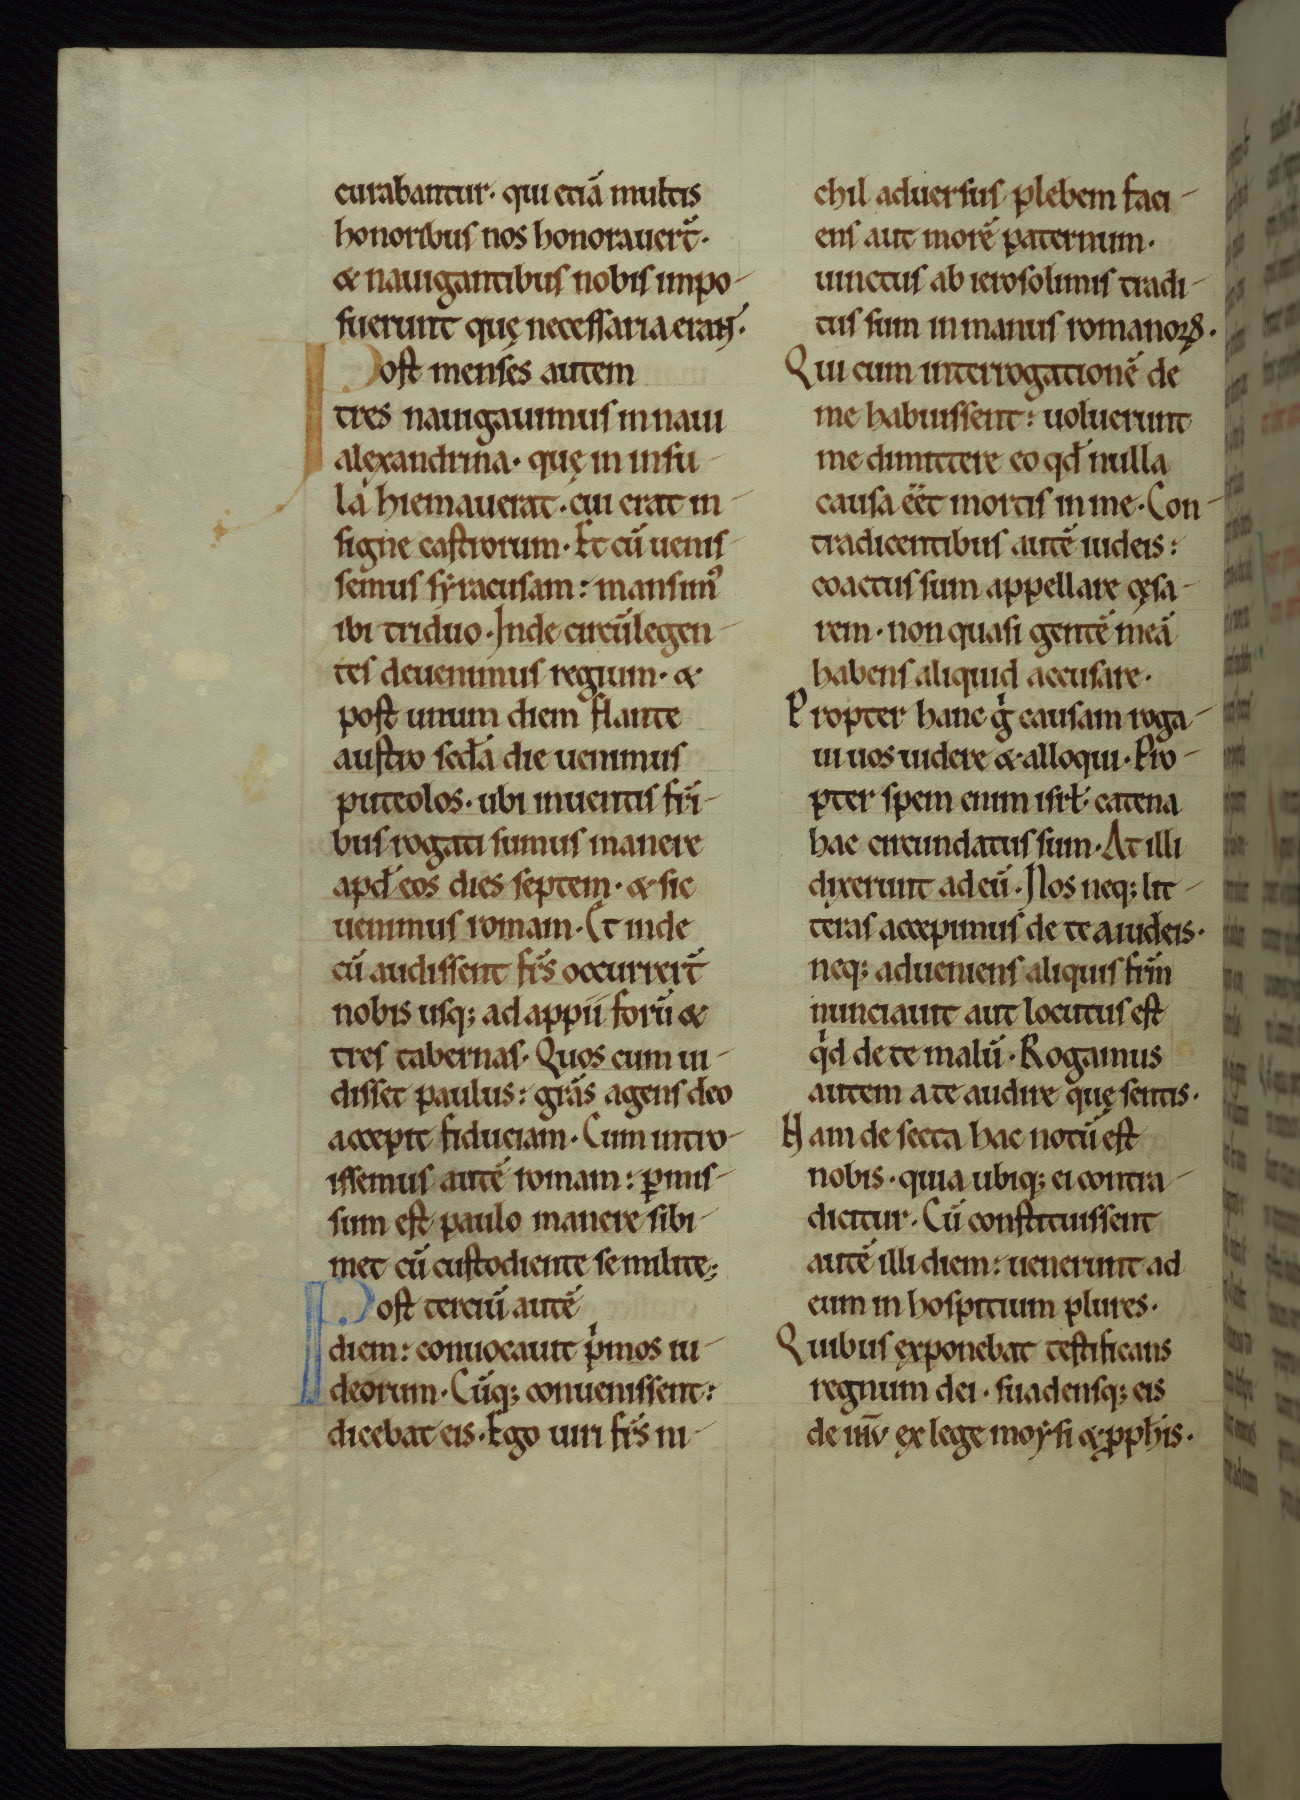 curabantur. qui etiā multis
honoribus nos honorauer̄t.
& nauigantibus nobis impo-
suerunt quę necessaria eraɴᴛ.
Post menses autem
tres nauigauimus in naui
alexandrina. quę in insu-
la hiemauerat. cui erat in-
signe castrorum. Et cū uenis-
semus syracusam: mansimꝰ
ibi triduo. Inde circūlegen-
tes deuenimus regium. &
post unum diem flante
austro scd̄a die uenimus
puteolos. ubi inuentis fri̅-
bus rogati sumus manere
apd̄ eos dies septem. & sic
uenimus romam. Et inde
cū audissent fr̄s occurrer̄t
nobis usq; ad appii forū &
tres tabernas. Quos cum ui-
disset paulus: gr̄as agens deo
accepit fiduciam. Cum intro-
issemus autē romam: ꝑmis-
sum est paulo manere sibi-
met cū custodiente se milite;
Post terciū autē
diem: conuocauit pⁱmos iu-
deorum. Cūq; conuenissent:
dicebat eis. Ego uiri fr̄s ni-
chil aduersus plebem faci-
ens aut morē paternum.
uinctus ab ierosolimis tradi-
tus sum in manus romanoꝝ.
Qui cum interrogationē de
me habuissent: uoluerunt
me dimittere eo qd̄ nulla
causa eēt mortis in me. Con-
tradicentibus autē iudeis:
coactus sum appellare cęsa-
rem. non quasi gentē meā
habens aliquid accusare.
Propter hanc gⁱ causam roga-
ui uos uidere & alloqui. Pro-
pter spem enim isrl̄. catena
hac circundatus sum. At illi
dixerunt ad eū. Nos neq; lit-
teras accepimus de te a iudeis.
neq; adueniens aliquis frm̄
nunciauit aut locutus est
qⁱd de te malū. Rogamus
autem a te audire quę sentis.
Nam de secta hac notū est
nobis. quia ubiq; ei contra-
dicitur. Cū constituissent
autē illi diem: uenerunt ad
eum in hospitium plures.
Quibus exponebat testificans
regnum dei. suadensq; eis
de ihū ex lege moysi & ꝓph̄is.